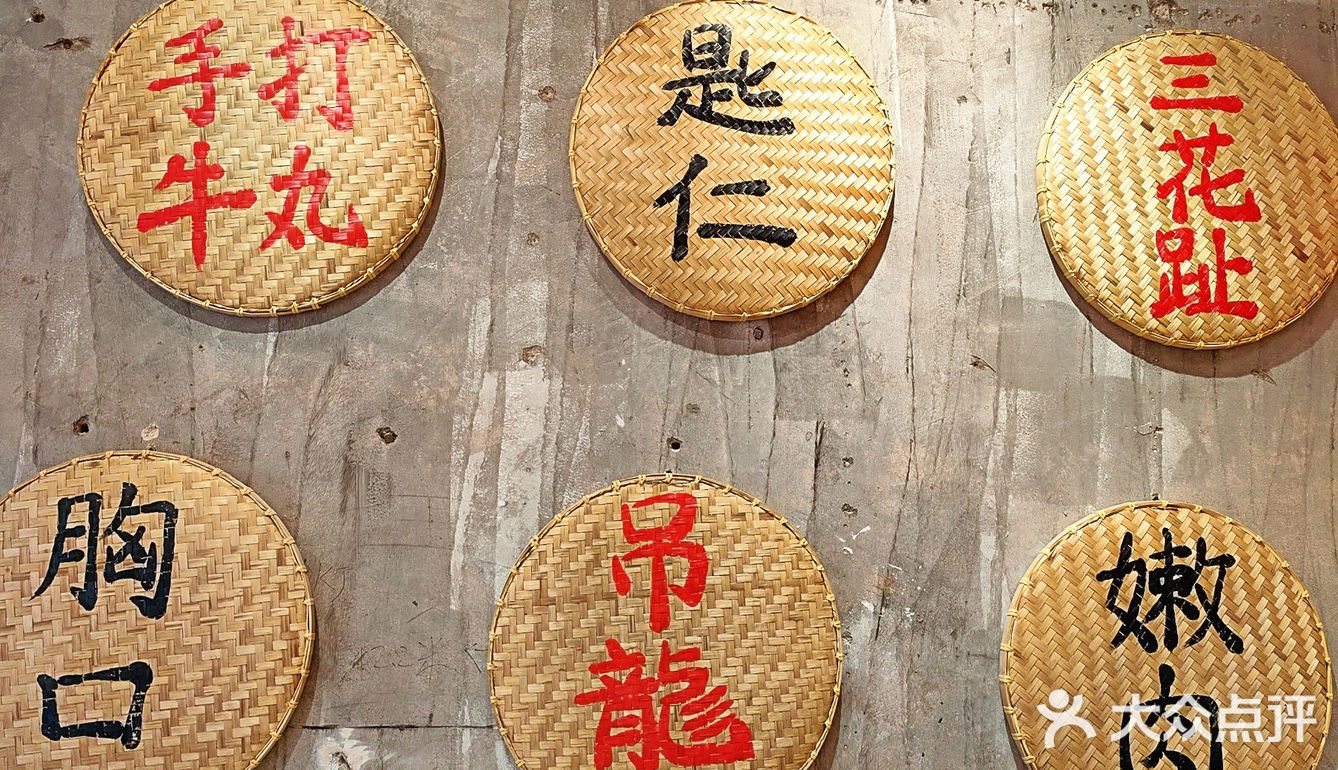 手打
牛丸
匙仁
三花趾
胸口
吊龍
嫩肉
大众点评